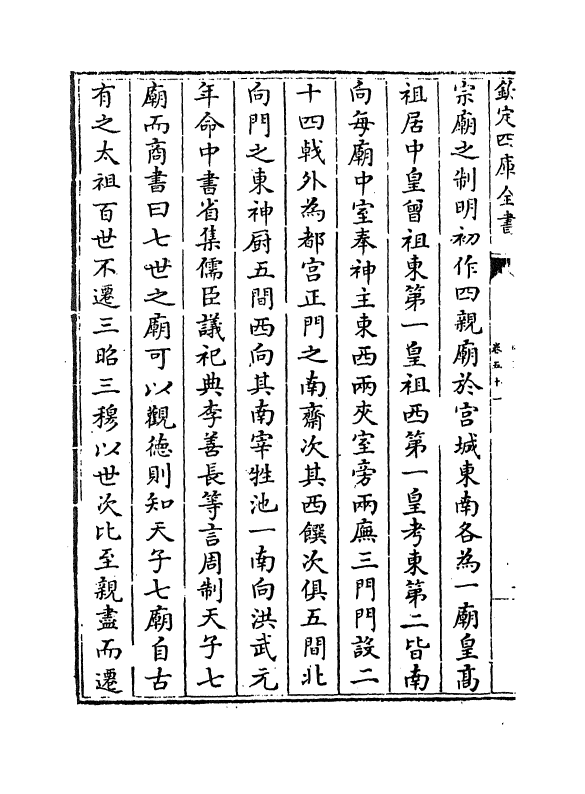 欽定四庫全書
卷五十一
宗廟之制明初作四親廟於宮城東南各為一廟皇高
祖居中皇曾祖東第一皇祖西第一皇考東第二皆南
向每廟中室奉神主東西兩夾室旁兩廡三門門設二
十四戟外為都宮正門之南齋次其西饌次俱五間北
向門之東神厨五間西向其南宰牲池一南向洪武元
年命中書省集儒臣議祀典李善長等言周制天子七
廟而商書曰七世之廟可以觀德則知天子七廟自古
有之太祖百世不遷三昭三穆以世次比至親盡而遷